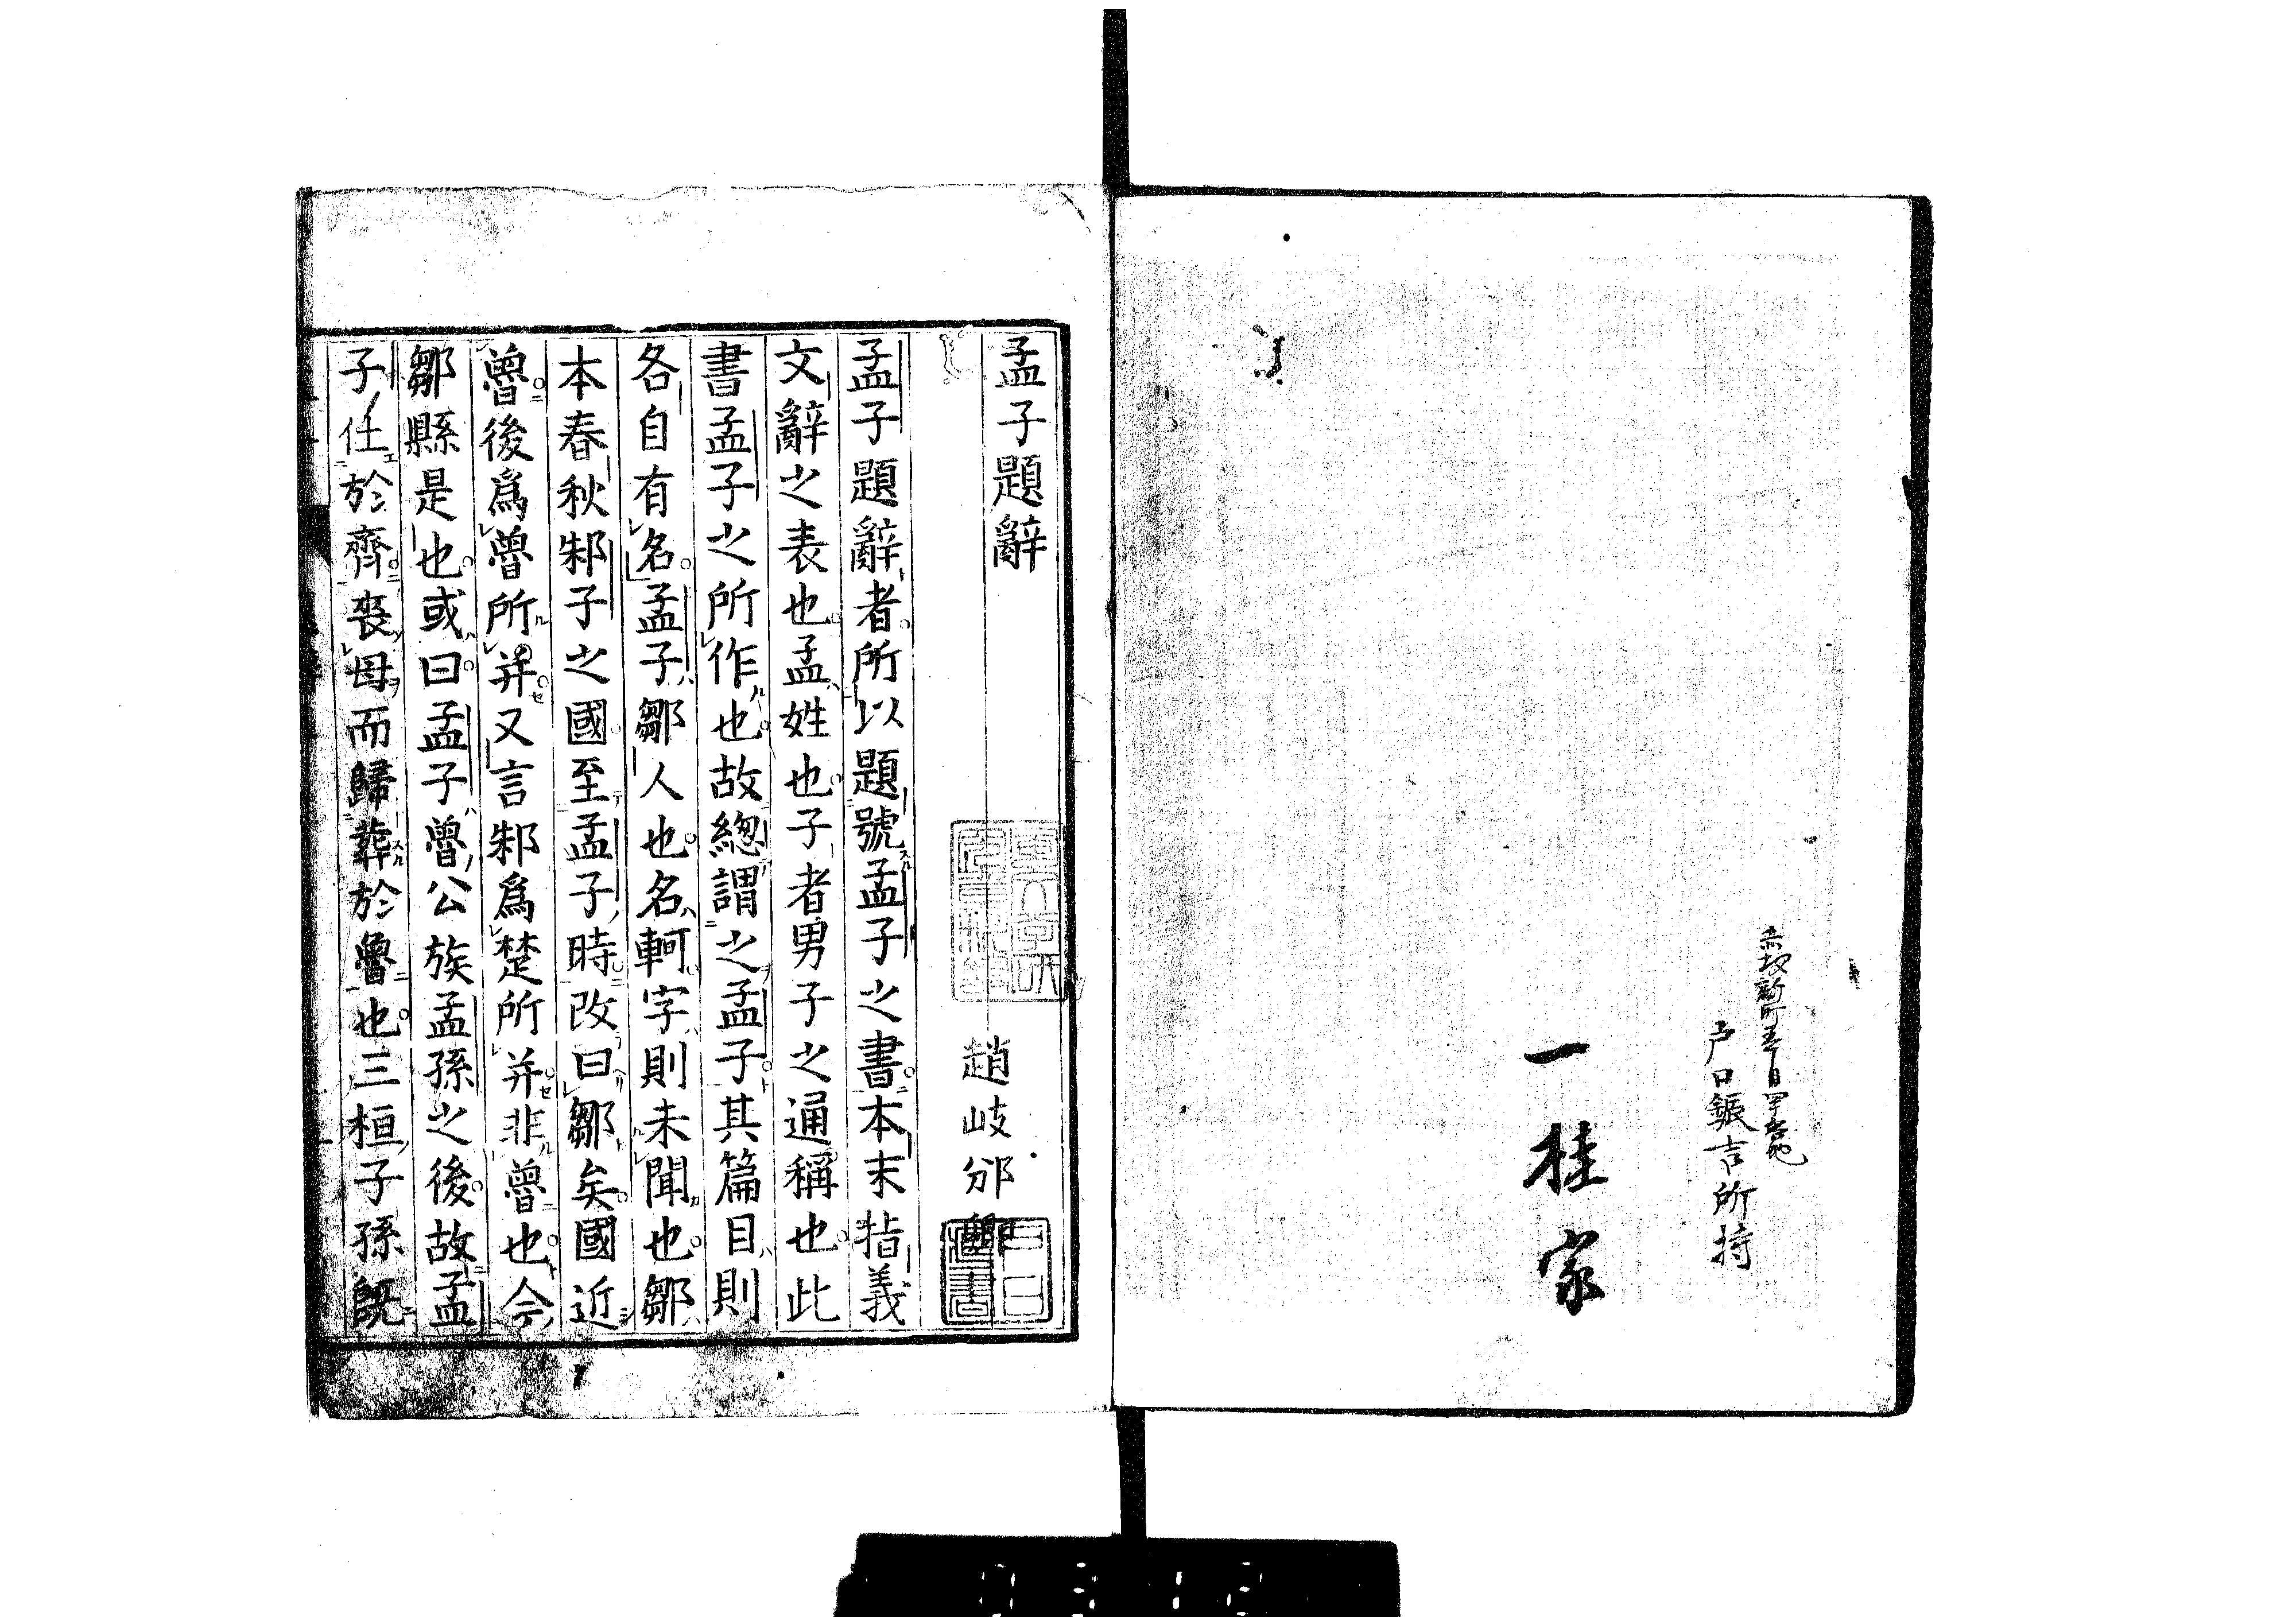 戸口鋠吉所持
一桂家
孟子題辭
趙岐邠卿
孟子題辭者所以題號孟子之書本末指義
文辭之表也孟姓也子者男子之通稱也此
書孟子之所作也故緫謂之孟子其篇目則
各自有名孟子鄒人也名軻字則未聞也鄒
本春秋邾子之國至孟子時改曰鄒矣國近
魯後爲魯所并又言邾爲楚所并非魯也今
鄒縣是也或曰孟子魯公族孟孫之後故孟
子仕於齊喪母而歸葬於魯也三桓子孫旣